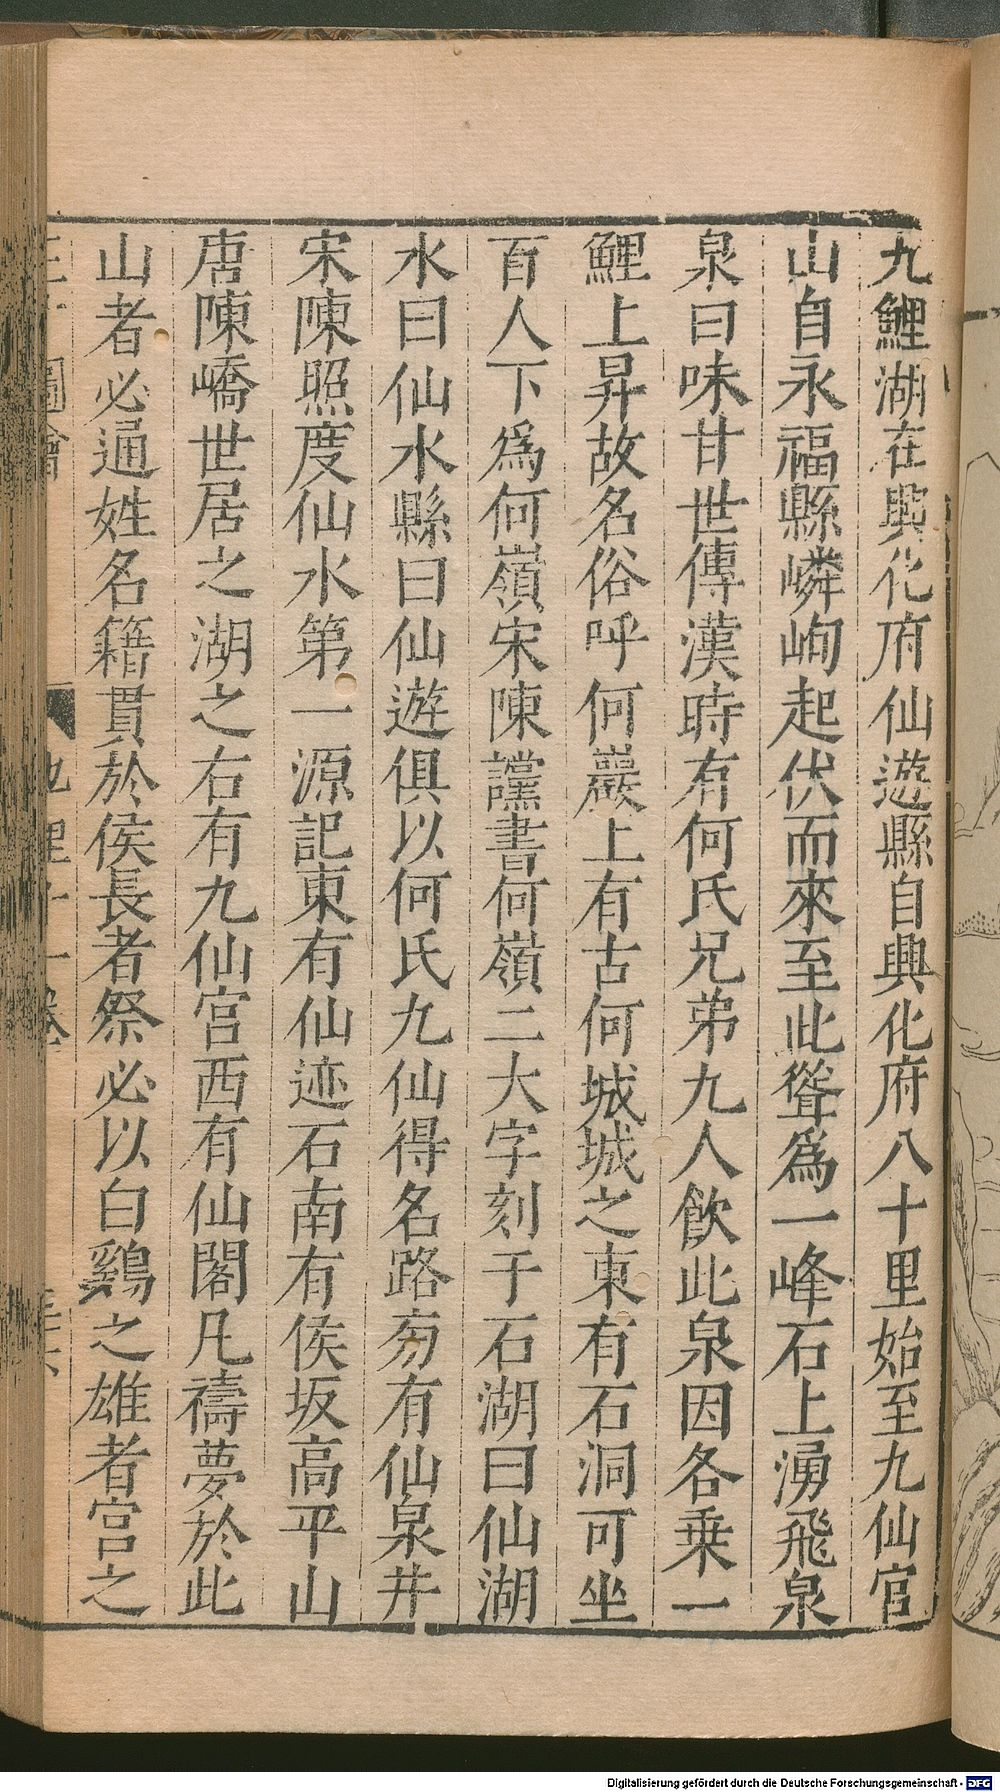 九鯉湖在興化府仙遊縣自興化府八十里始至九仙官
山自永福縣嶙峋起伏而來至此聳爲一峰石上湧飛泉
泉曰味甘世傳漢時有何氏兄弟九人飲此泉因各乗一
鯉上昇故名俗呼何巖上有古何城城之東有石洞可坐
百人下爲何嶺宋陳讜書何嶺二大字刻于石湖曰仙湖
水曰仙水縣曰仙遊俱以何氏九仙得名路旁有仙泉井
宋陳照度仙水第一源記東有仙迹石南有侯坂高平山
唐陳嶠世居之湖之右有九仙宮西有仙閣凡禱夢於此
山者必通姓名籍貫於侯長者祭必以白鷄之雄者宮之
圖會
地理十一卷
Digitalisierung gefördert durch die Deutsche Forschungsgemeinschaft - DFG